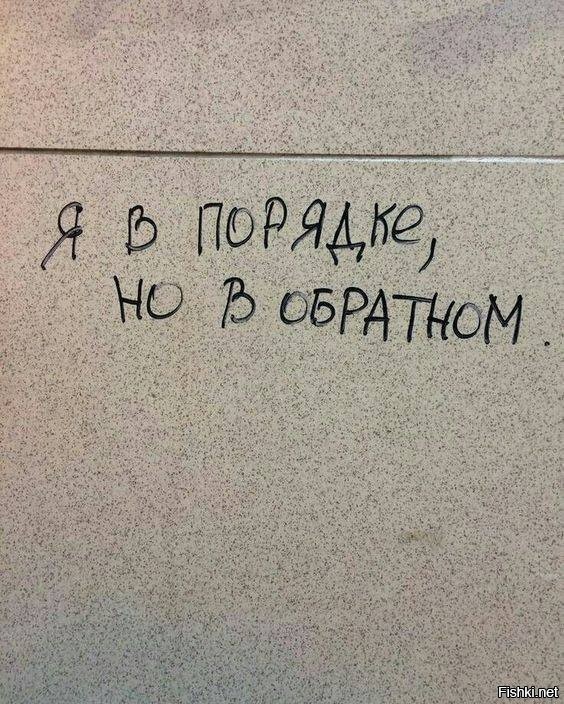 Я В ПОРЯДКЕ,
НО В ОБРАТНОМ.
Fishki.net